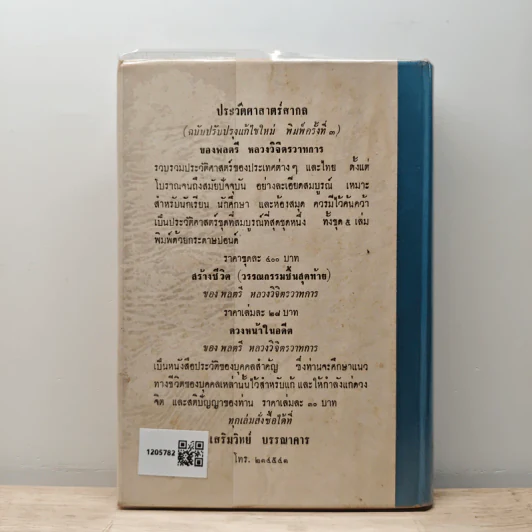 ประวัติศาสตร์สากล
(ฉบับปรับปรุงแก้ไขใหม่ พิมพ์ครั้งที่ ๓)
ของพลตรี หลวงวิจิตรวาทการ
รวบรวมประวัติศาสตร์ของประเทศต่างๆ และไทย ตั้งแต่
โบราณจนถึงสมัยปัจจุบัน อย่างละเอียดสมบูรณ์ เหมาะ
สำหรับนักเรียน นักศึกษา และห้องสมุด ควรมีไว้ค้นคว้า
เป็นประวัติศาสตร์ชุดที่สมบูรณ์ที่สุดชุดหนึ่ง ทั้งชุด ๕ เล่ม
พิมพ์ด้วยกระดาษปอนด์
ราคาชุดละ ๔๐๐ บาท
สร้างชีวิต (วรรณกรรมชิ้นสุดท้าย)
ของ พลตรี หลวงวิจิตรวาทการ
ราคาเล่มละ ๒๘ บาท
ดวงหน้าในอดีต
ของ พลตรี หลวงวิจิตรวาทการ
เป็นหนังสือประวัติของบุคคลสำคัญ ซึ่งท่านจะศึกษาแนว
ทางชีวิตของบุคคลเหล่านั้นไว้สำหรับแก้ และให้กำลังแก่ดวง
จิต และสติปัญญาของท่าน ราคาเล่มละ ๓๐ บาท
ทุกเล่มสั่งซื้อได้ที่
เสริมวิทย์ บรรณาคาร
โทร. ๒๑๔๕๔๑
1205782